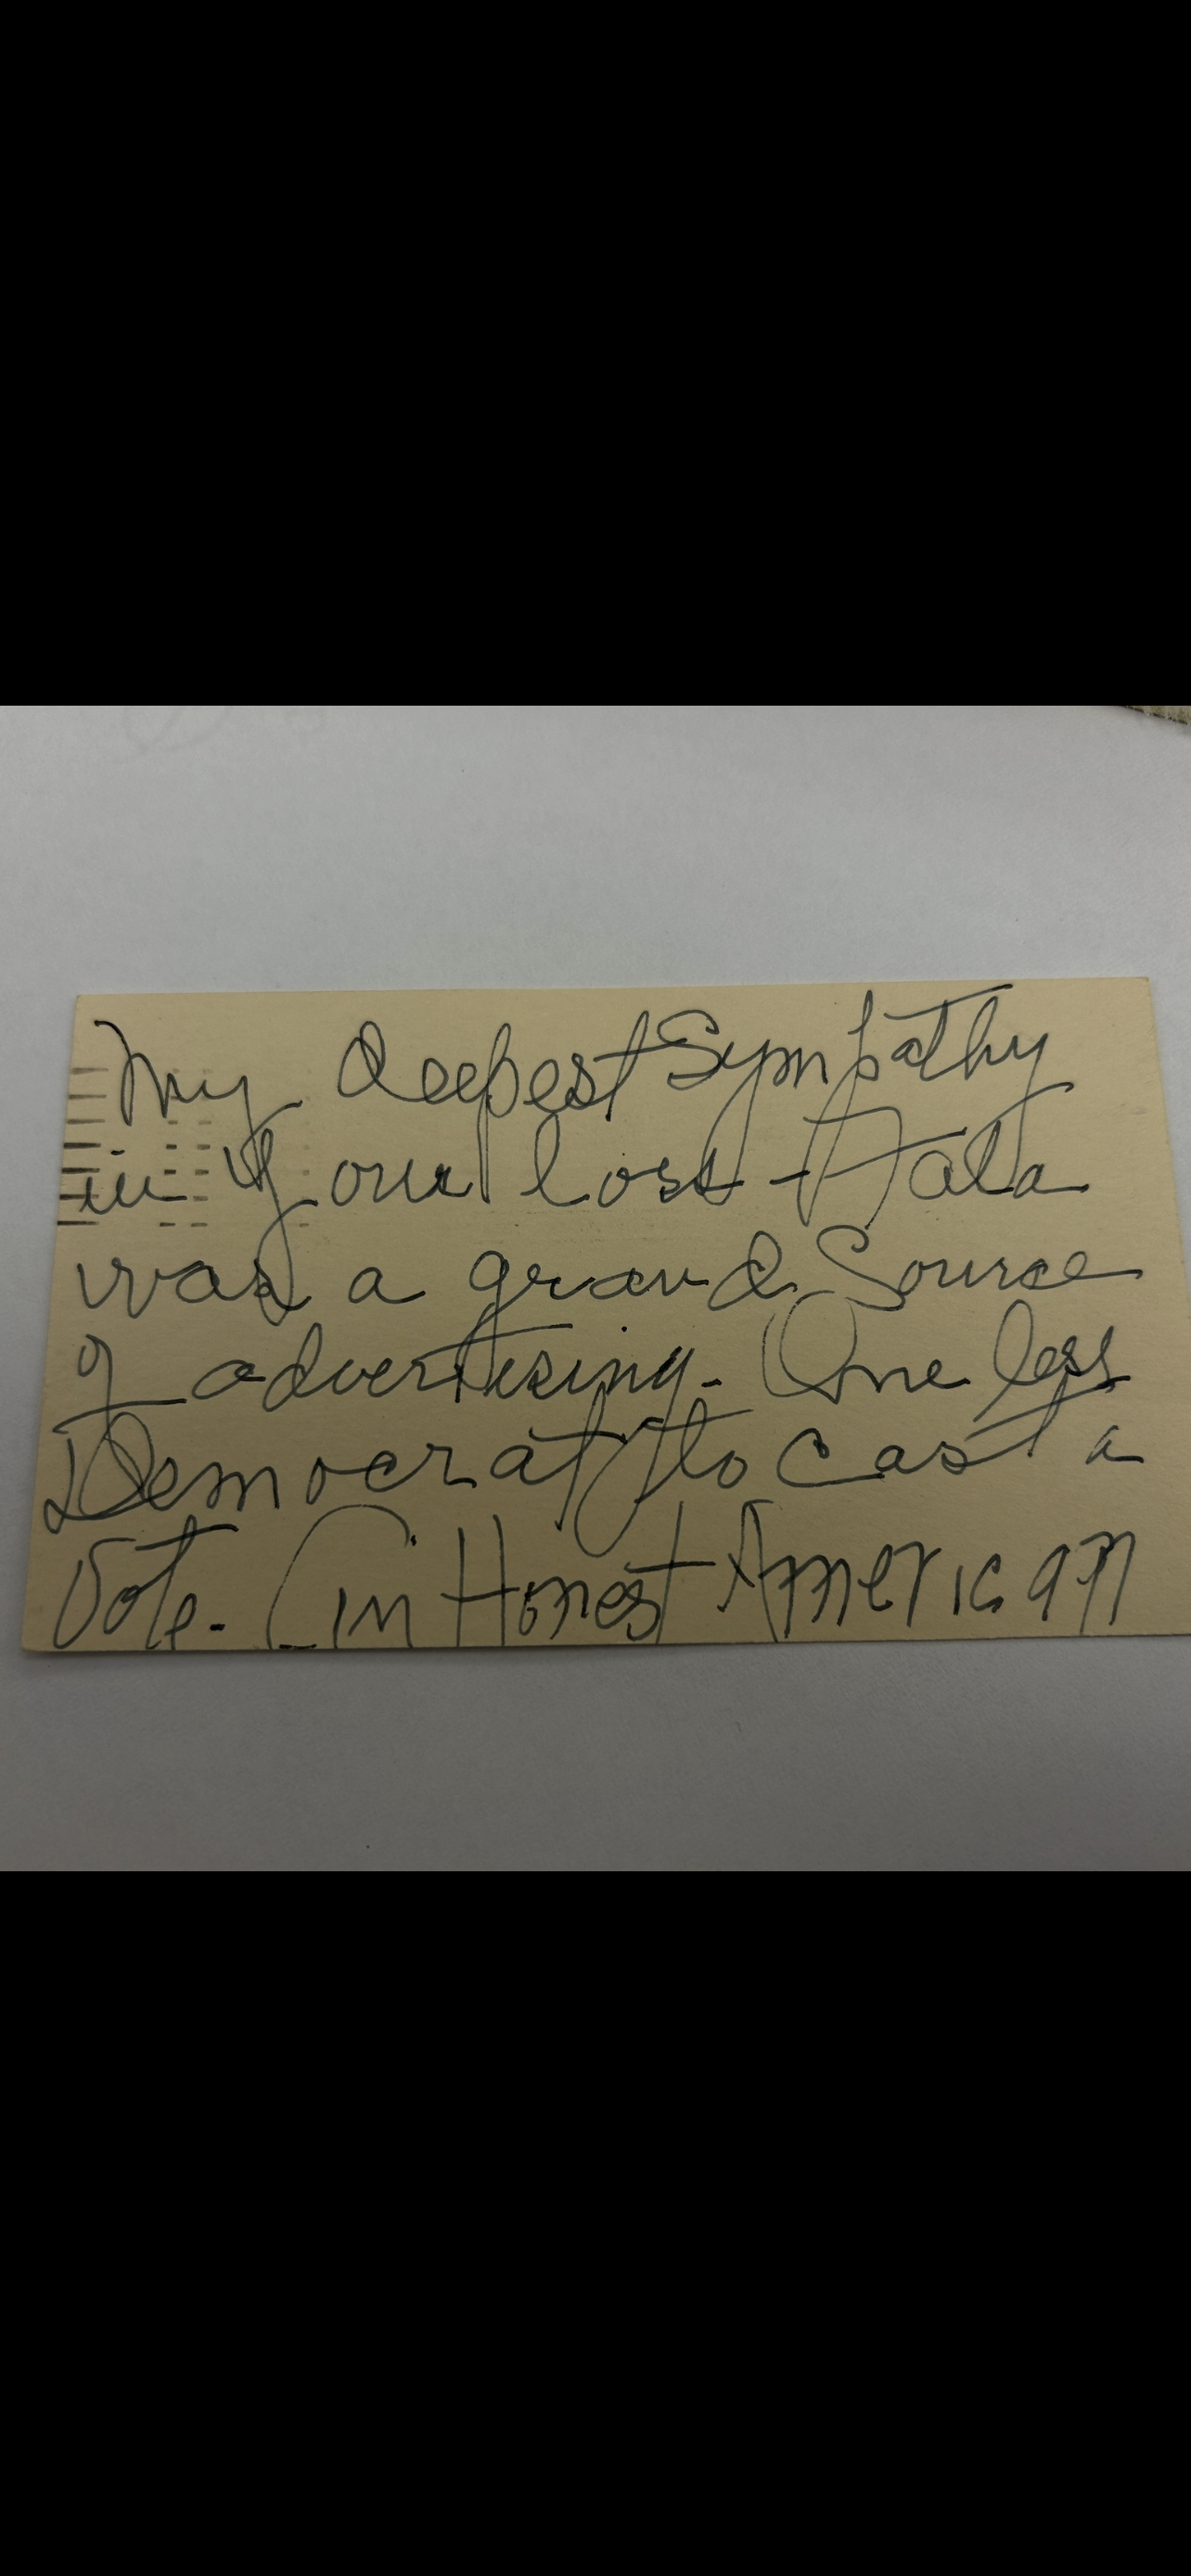 My deepest Sympathy
in your loss - Fala
was a grand Source
of advertising. One less
Democrat to cast a
Vote. An Honest American